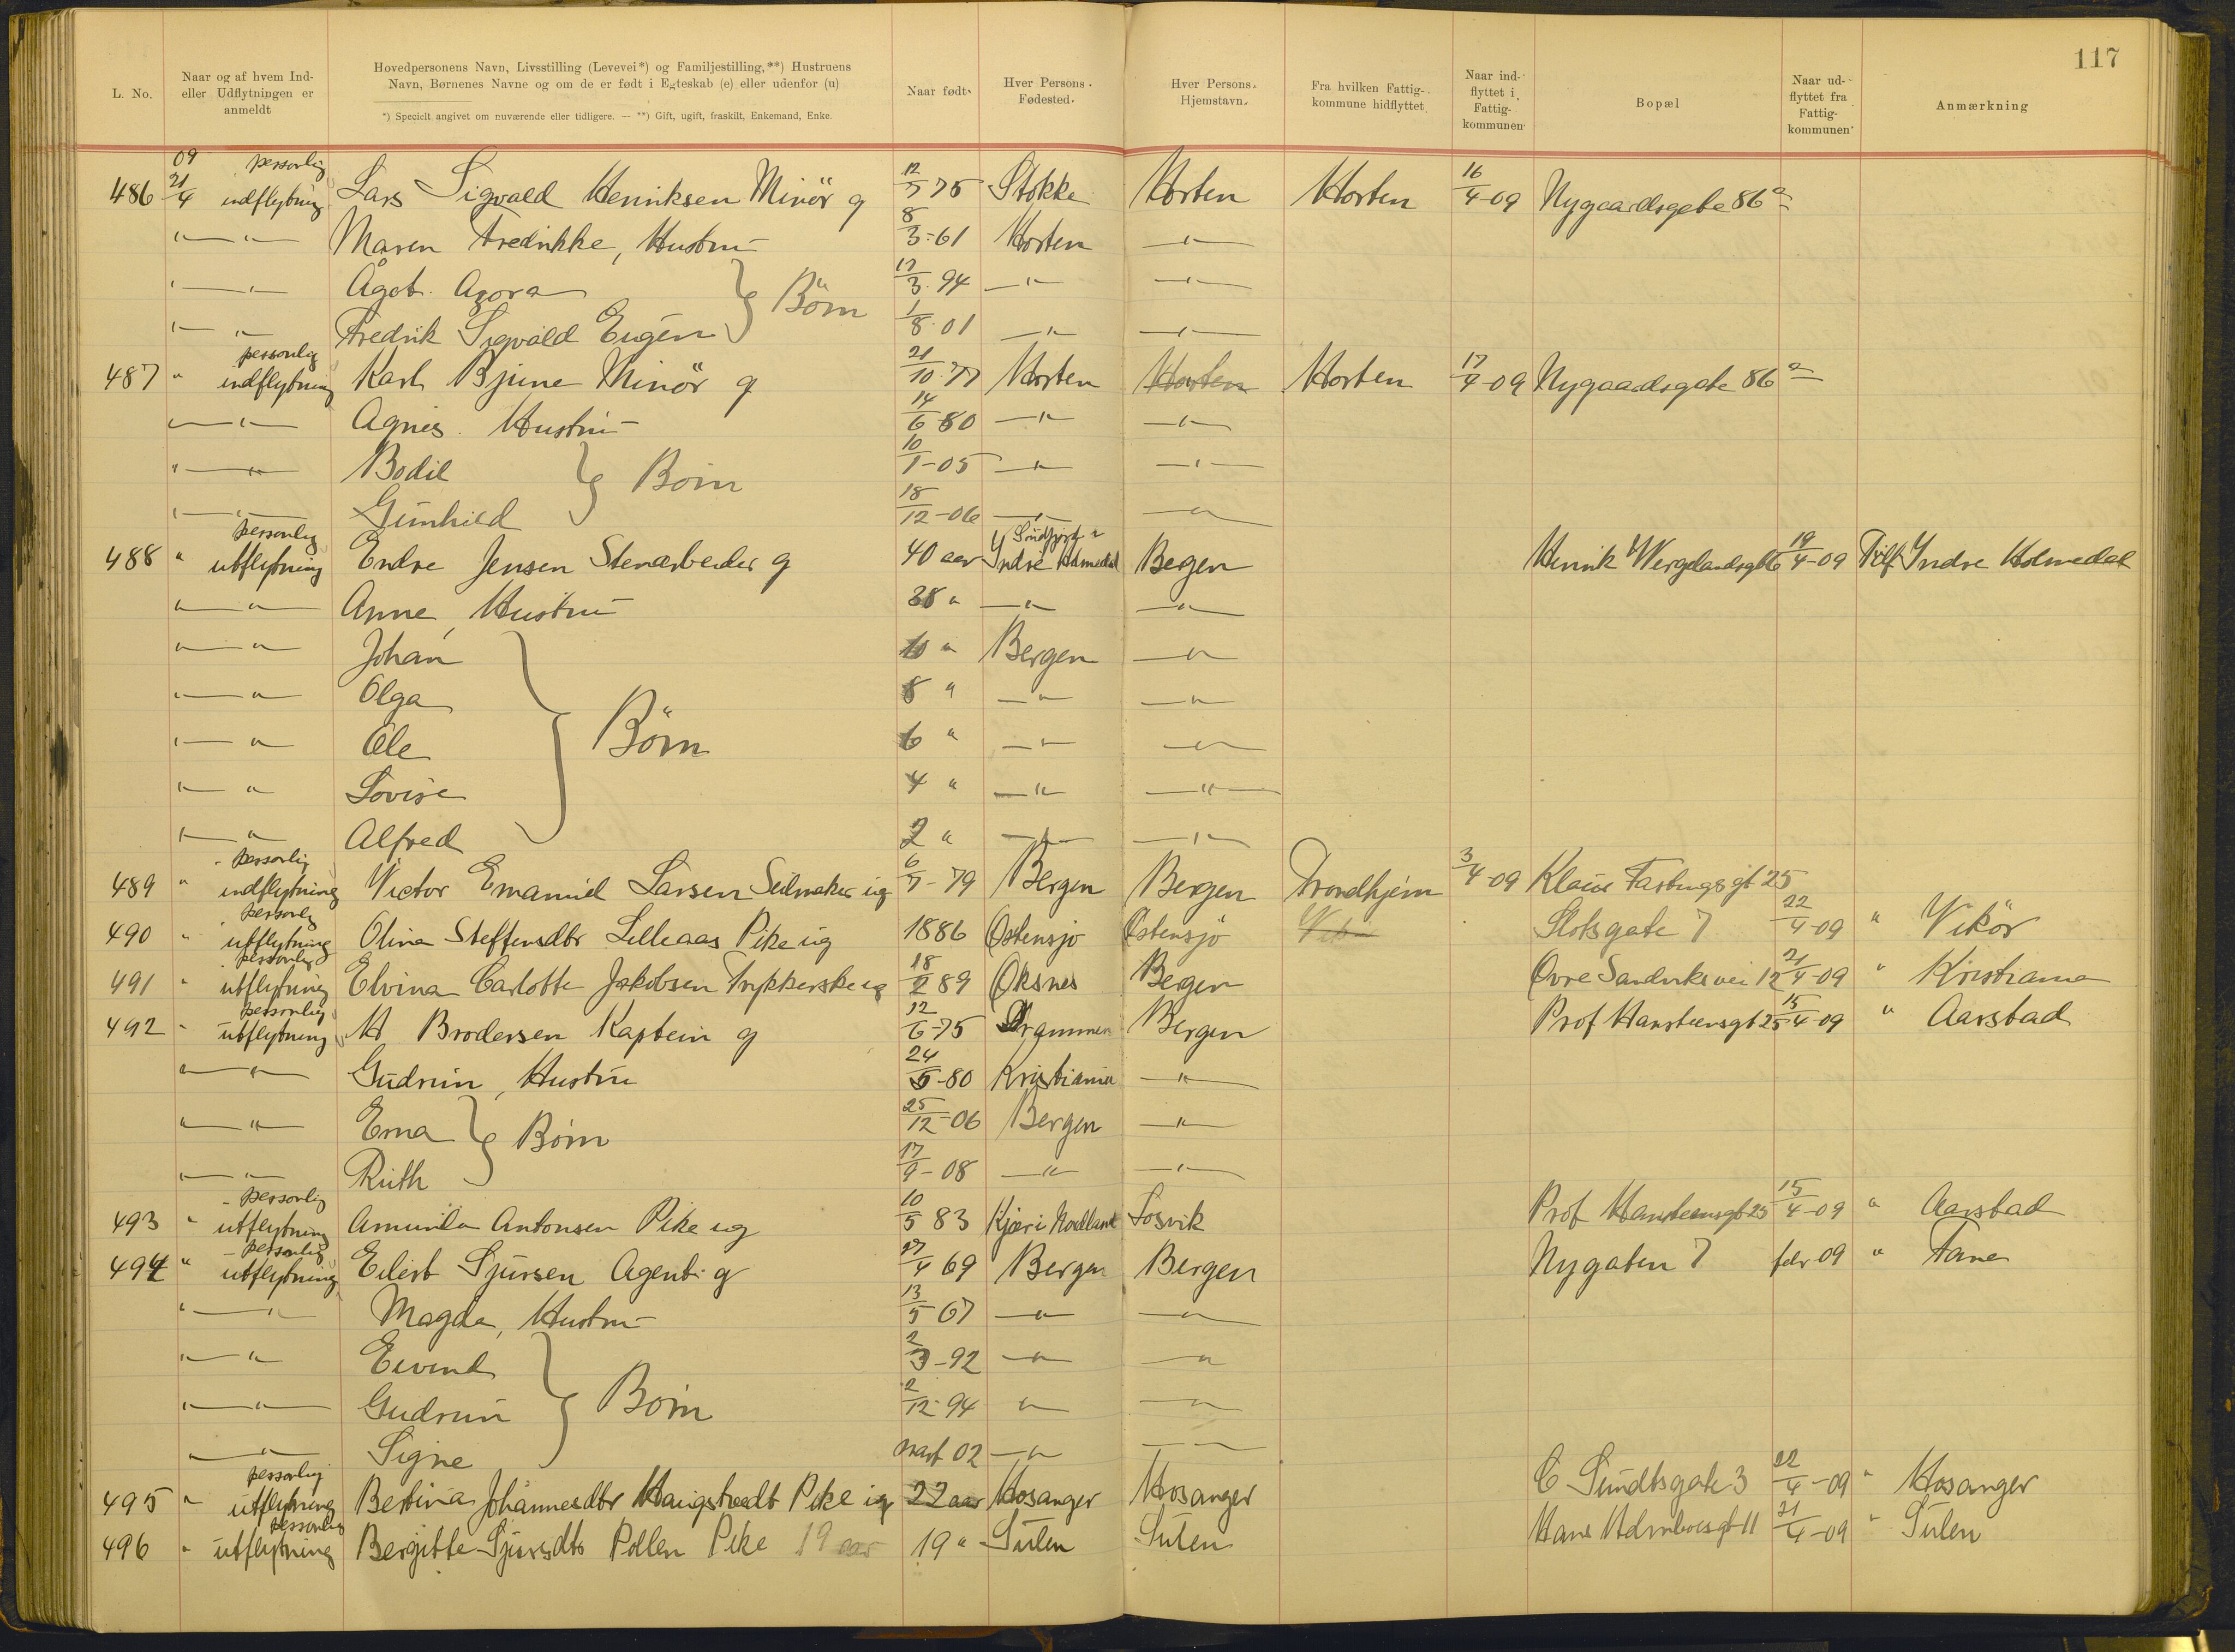 117
L. No.
Naar og af hvem Ind- eller Udflytningen er anmeldt
Hovedpersonens Navn, Livsstilling (Levevei*) og Familjestilling,**) Hustruens Navn, Børnenes Navne og om de er født i Egteskab (e) eller udenfor (u)
*) Specielt angivet om nuværende eller tidligere. — **) Gift, ugift, fraskilt, Enkemand, Enke.
Naar født.
Hver Persons Fødested.
Hver Persons Hjemstavn.
Fra hvilken Fattig- kommune hidflyttet
Naar ind- flyttet i Fattig- kommunen
Bopæl
Naar ud- flyttet fra Fattig- kommunen
Anmærkning
486 09 21/4 personlig indflytning Lars Sigvald Henriksen Minör g 12/7 75 Stokke Horten Horten 16/4-09 Nygaardsgate 86a
—"— Maren Fredrikke, Hustru 8/3-61 Horten —"—
—"— Ågot Agora } Börn 17/3-94 —"— —"—
—"— Fredrik Sigvald Eugén 1/8-01 —"— —"—
487 " personlig indflytning Karl Bjune Minör g 21/10-77 Horten Horten Horten 17/4-09 Nygaardsgate 86a
—"— Agnes Hustru 14/6 80 —"— —"—
—"— Bodil } Börn 10/1-05 —"— —"—
—"— Gunhild 18/12-06 —"— —"—
488 " personlig utflytning Endre Jensen Stenarbeider g 40 aar Yndre Holmedal Söndfjord Bergen Henrik Wergelandsgt 6 19/4-09 Tilf Yndre Holmedal
—"— Anne, Hustru 38 " —"— —"—
—"— Johan 10 " Bergen —"—
—"— Olga 8 " —"— —"—
—"— Ole } Börn 6 " —"— —"—
—"— Lovise 4 " —"— —"—
—"— Alfred 2 " —"— —"—
489 " personlig indflytning Victor Emanuel Larsen Seilmaker ug 6/7-79 Bergen Bergen Trondhjem 3/4-09 Klaus Fastingsgt 25
490 " personlig utflytning Olina Steffensdtr Lilleaas Pike ug 1886 Östensjö Östensjö Slotsgate 7 22/4-09 " Vikör
491 " personlig utflytning Elvina Carlotte Jakobsen Trykkerske ug 18/2 89 Öksnes Bergen Övre Sandviksvei 12 21/4-09 " Kristiania
492 " personlig utflytning H Brodersen Kaptein g 12/6-75 Drammen Bergen Prof Hansteensgt 25 15/4-09 " Aarstad
—"— Gudrun, Hustru 24/5-80 Kristiania —"—
—"— Erna } Börn 25/12-06 Bergen —"—
—"— Ruth 17/9-08 —"— —"—
493 " personlig utflytning Amunda Antonsen Pike ug 10/5 83 Kjær i Nordland Fosvik Prof Hansteensgt 25 15/4-09 " Aarstad
494 " personlig utflytning Eilert Sjursen Agent g 27/4 69 Bergen Bergen Nygaten 7 febr 09 " Fane
—"— Magda, Hustru 13/5-67 —"— —"—
—"— Eivind 2/3-92 —"— —"—
—"— Gudrun } Börn 2/12-94 " —"—
—"— Signe 02 —"— —"—
495 " personlig utflytning Bertina Johannesdtr Haugstvedt Pike ug 22 aar Hosanger Hosanger C Sundtsgate 3 22/4-09 " Hosanger
496 " personlig utflytning Bergitte Sjursdtr Pollen Pike 19 aar 19 " Sulen Sulen Hans Holmboesgt 11 21/4-09 " Sulen